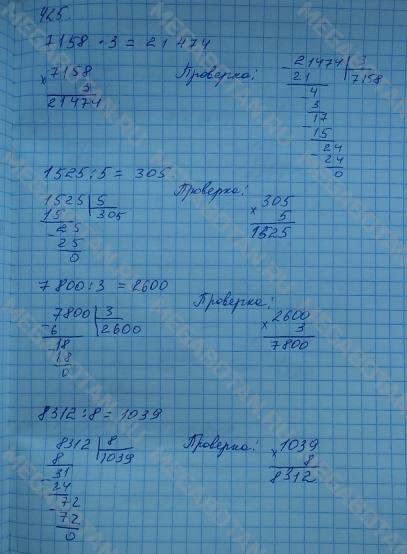 425.
7158 · 3 = 21474
× 7158
3
21474
Проверка:
- 21474 | 3
21 | 7158
- 4
3
- 17
15
- 24
24
0
1525 : 5 = 305
1525 | 5
15 | 305
- 25
25
0
Проверка:
× 305
5
1525
7800 : 3 = 2600
7800 | 3
- 6 | 2600
- 18
18
0
Проверка:
× 2600
3
7800
8312 : 8 = 1039
8312 | 8
8 | 1039
- 31
24
- 72
72
0
Проверка:
× 1039
8
8312
MEGABOTAN.RU